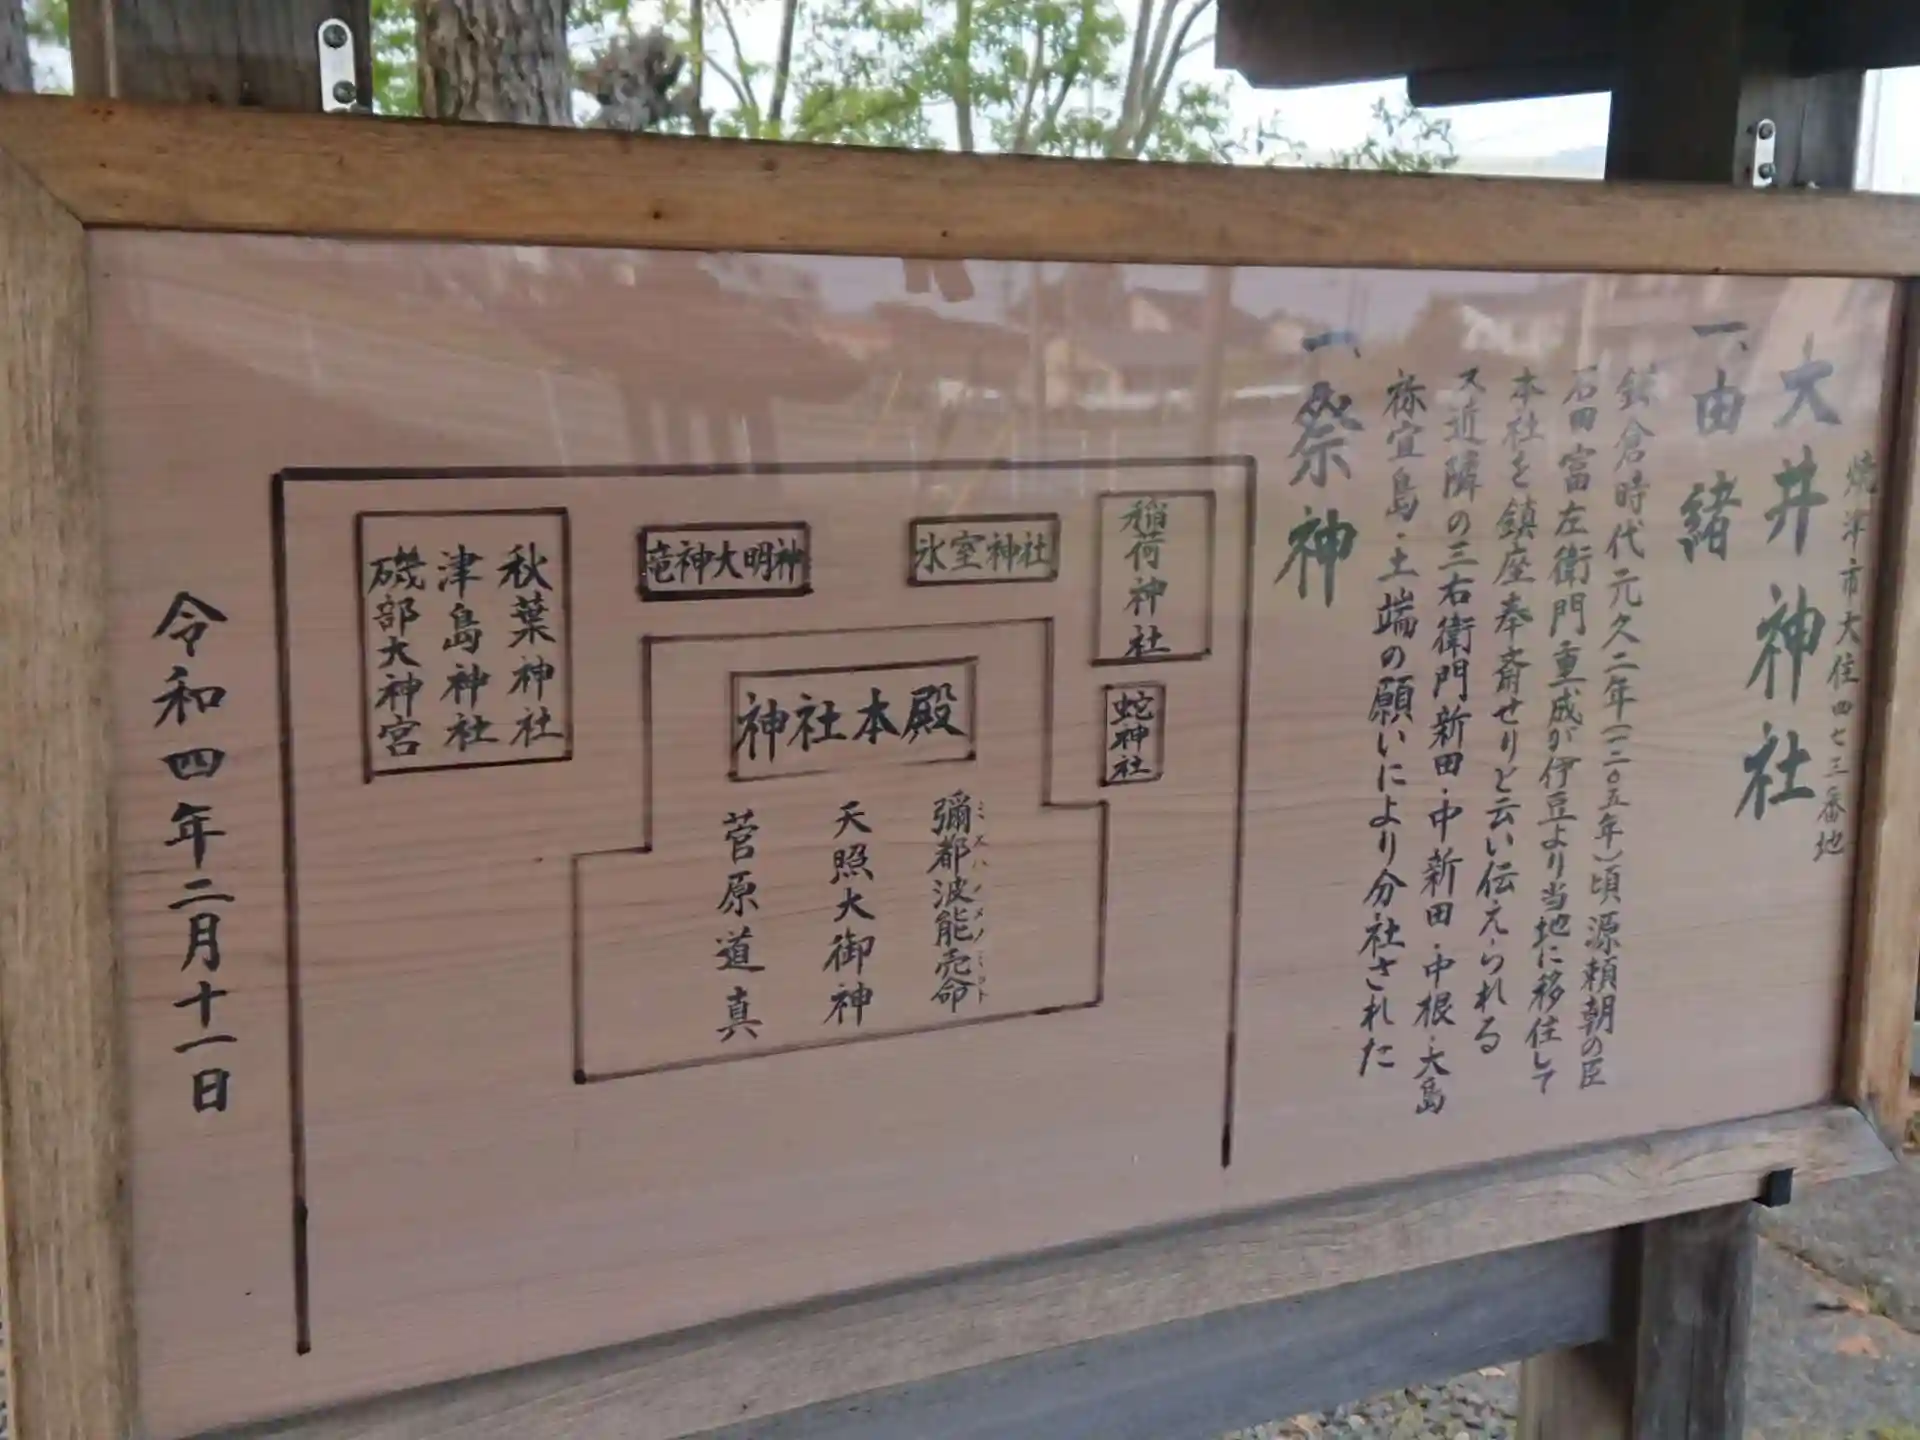 焼津市大住四七三番地
大井神社
一、由緒
鎌倉時代元久二年(一二〇五年)頃源頼朝の臣
石田富左衛門重成が伊豆より当地に移住して
本社を鎮座奉斎せりと云い伝えられる
又近隣の三右衛門新田・中新田・中根・大島
祢宜島・土端の願いにより分社された
一、祭神
稲荷神社
蛇神社
氷室神社
竜神大明神
神社本殿
彌都波能売命
ミズハノメノミコト
天照大御神
菅原道真
秋葉神社
津島神社
磯部大神宮
令和四年二月十一日